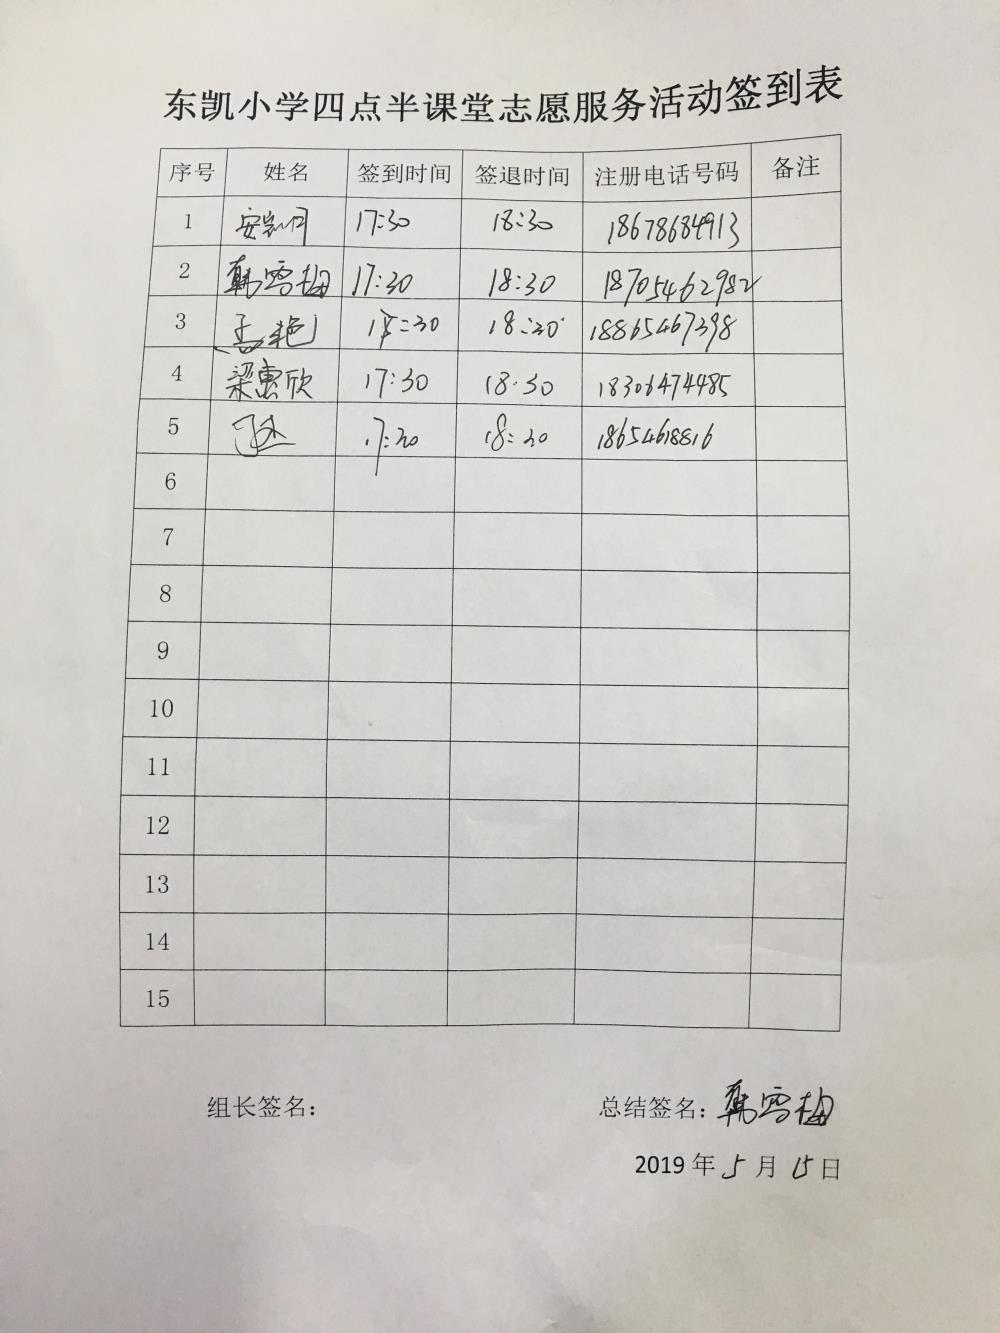 东凯小学四点半课堂志愿服务活动签到表
序号 姓名 签到时间 签退时间 注册电话号码 备注
1 安凯月 17:30 18:30 18678684913
2 韩雪梅 17:30 18:30 18705462982
3 孟艳 18:30 18865467398
4 梁惠欣 17:30 18:30 18306474485
5 17:30 18:30 18654618816
6
7
8
9
10
11
12
13
14
15
组长签名：
总结签名：韩雪梅
2019年5月15日